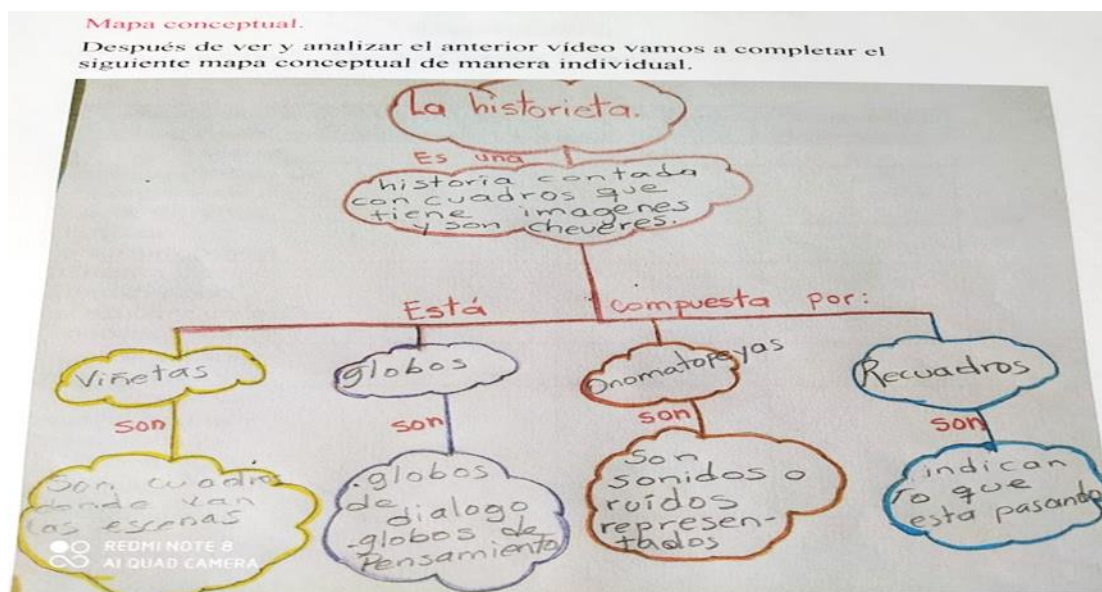 Mapa conceptual.
Después de ver y analizar el anterior vídeo vamos a completar el
siguiente mapa conceptual de manera individual.
La historieta.
Es una
historia contada
con cuadros que
tiene imagenes
y son cheveres.
Está compuesta por:
Viñetas
son
son cuadros
donde van
las escenas
globos
son
.globos
de dialogo
-globos de
Pensamiento
Onomatopeyas
son
Son
sonidos o
ruídos
represen-
tados
Recuadros
son
indican
lo que
esta pasando
REDMI NOTE 8
AI QUAD CAMERA